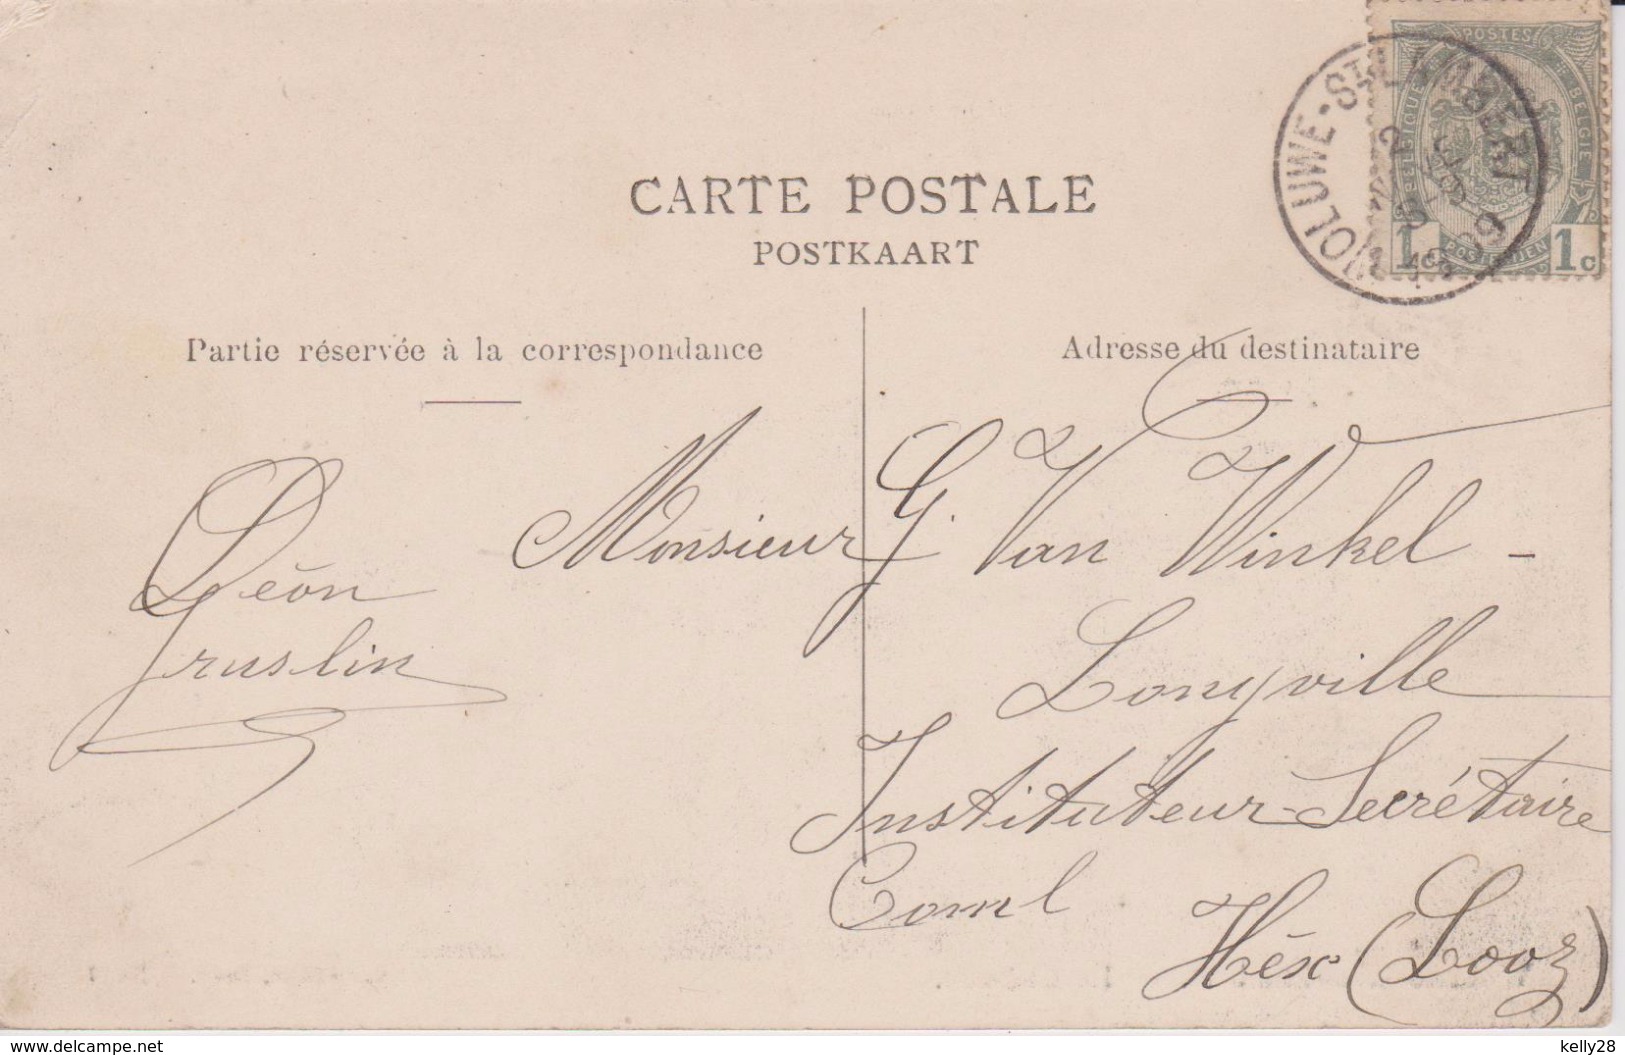 POSTES
BELGIQUE
BELGIE
1
POSTERIJEN
1c
WOLUWE-ST-LAMBERT
CARTE POSTALE
POSTKAART
Partie réservée à la correspondance
Adresse du destinataire
Monsieur G. Van Winkel -
Léon
Gruslin
Longville
Instituteur-Secrétaire
Coml
Hêx (Looz)
www.delcampe.net
kelly28